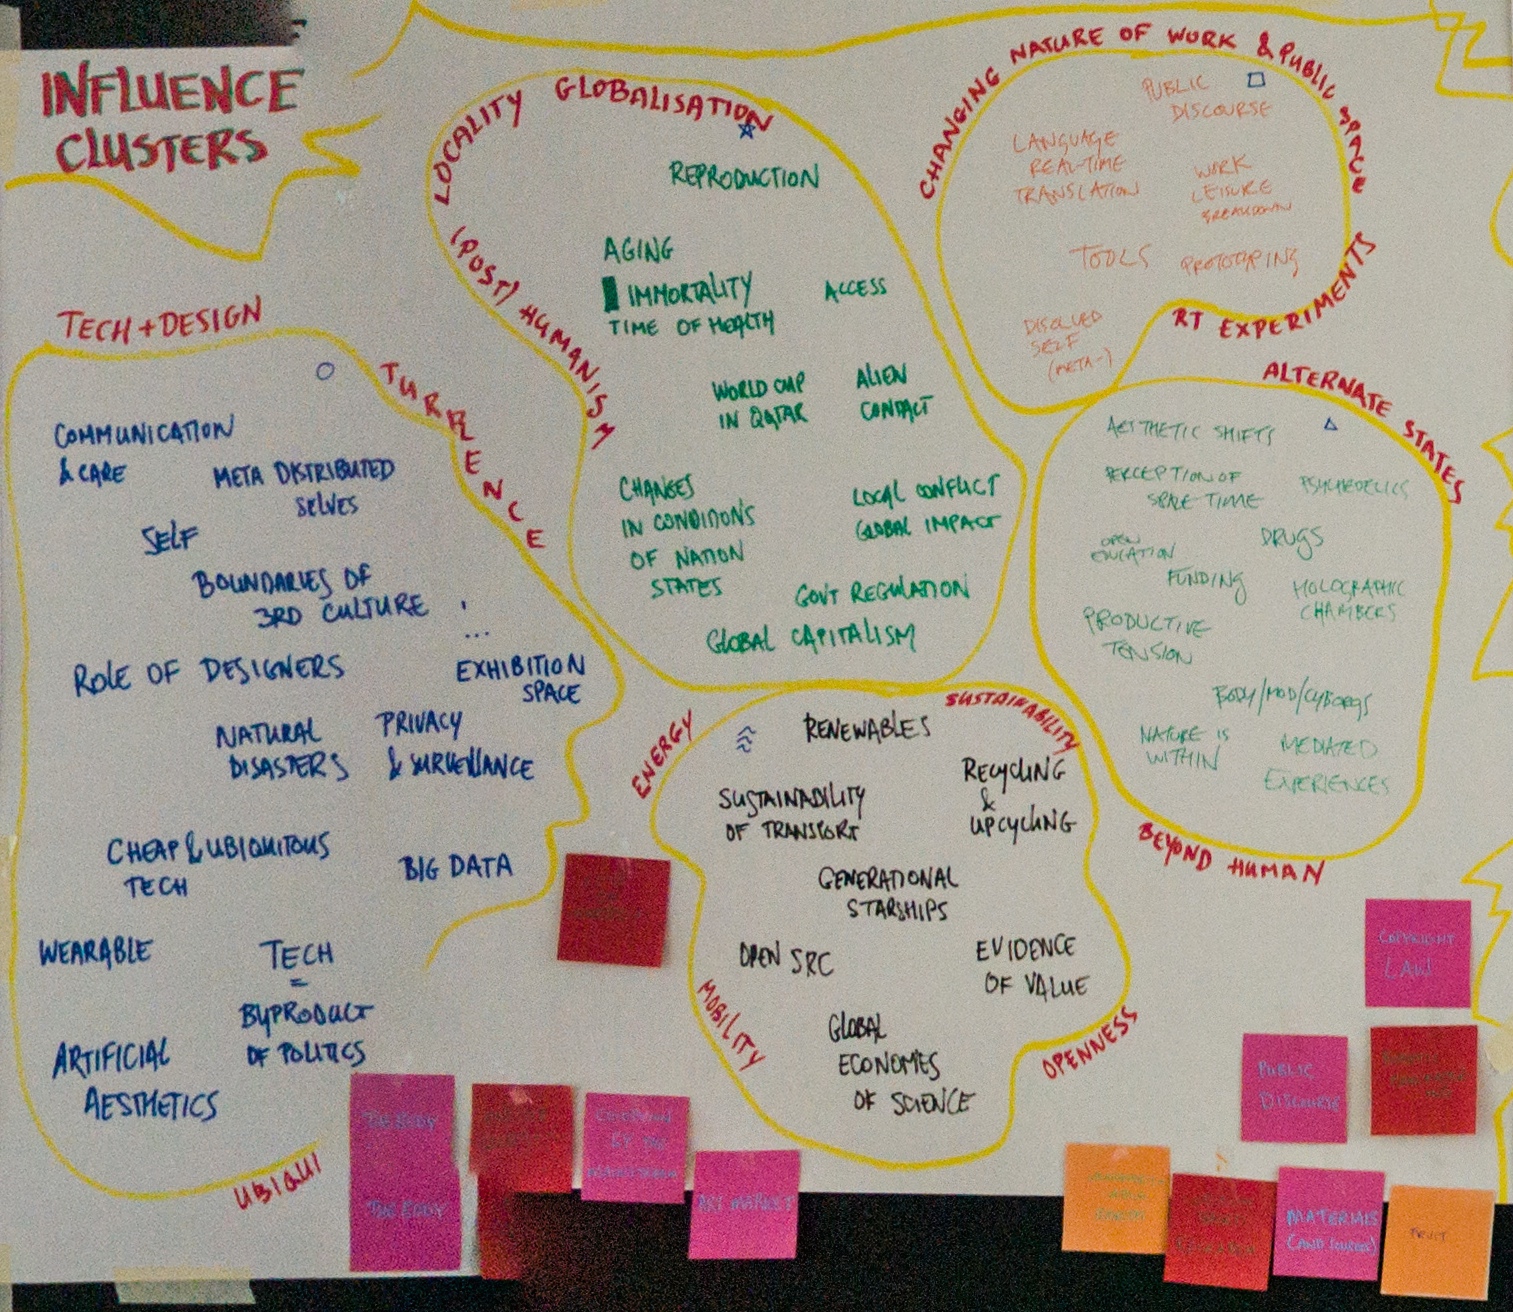 INFLUENCE
CLUSTERS
TECH + DESIGN
TURRENCE
COMMUNICATION
& CARE
META DISTRIBUTED
SELVES
SELF
BOUNDARIES OF
3RD CULTURE
...
ROLE OF DESIGNERS
EXHIBITION
SPACE
NATURAL
DISASTERS
PRIVACY
& SURVEILLANCE
CHEAP & UBIQUITOUS
TECH
BIG DATA
WEARABLE
TECH
=
BYPRODUCT
OF POLITICS
ARTIFICIAL
AESTHETICS
UBIQUI
LOCALITY GLOBALISATION
(POST) HUMANISM
REPRODUCTION
AGING
IMMORTALITY
TIME OF HEALTH
ACCESS
WORLD CUP
IN QATAR
ALIEN
CONTACT
CHANGES
IN CONDITIONS
OF NATION
STATES
LOCAL CONFLICT
GLOBAL IMPACT
GOVT REGULATION
GLOBAL CAPITALISM
CHANGING NATURE OF WORK & PUBLIC SPACE
PUBLIC
DISCOURSE
LANGUAGE
REAL-TIME
TRANSLATION
WORK
LEISURE
BREAKDOWN
TOOLS
PROTOTYPING
DISOLVED
SELF
(META-)
RT EXPERIMENTS
ALTERNATE STATES
AESTHETIC SHIFTS
PERCEPTION OF
SPACE-TIME
PSYCHEDELICS
OPEN
EDUCATION
DRUGS
FUNDING
HOLOGRAPHIC
CHAMBERS
PRODUCTIVE
TENSION
BODY/MOD/CYBORGS
NATURE IS
WITHIN
MEDIATED
EXPERIENCES
BEYOND HUMAN
ENERGY
SUSTAINABILITY
RENEWABLES
SUSTAINABILITY
OF TRANSPORT
RECYCLING
&
UPCYCLING
GENERATIONAL
STARSHIPS
OPEN SRC
EVIDENCE
OF VALUE
GLOBAL
ECONOMIES
OF SCIENCE
MOBILITY
OPENNESS
COPYRIGHT
LAW
PUBLIC
DISCOURSE
THE BODY
THE BODY
BY THE
ART MARKET
MATERIALS
(AND SOURCES)
FRUIT